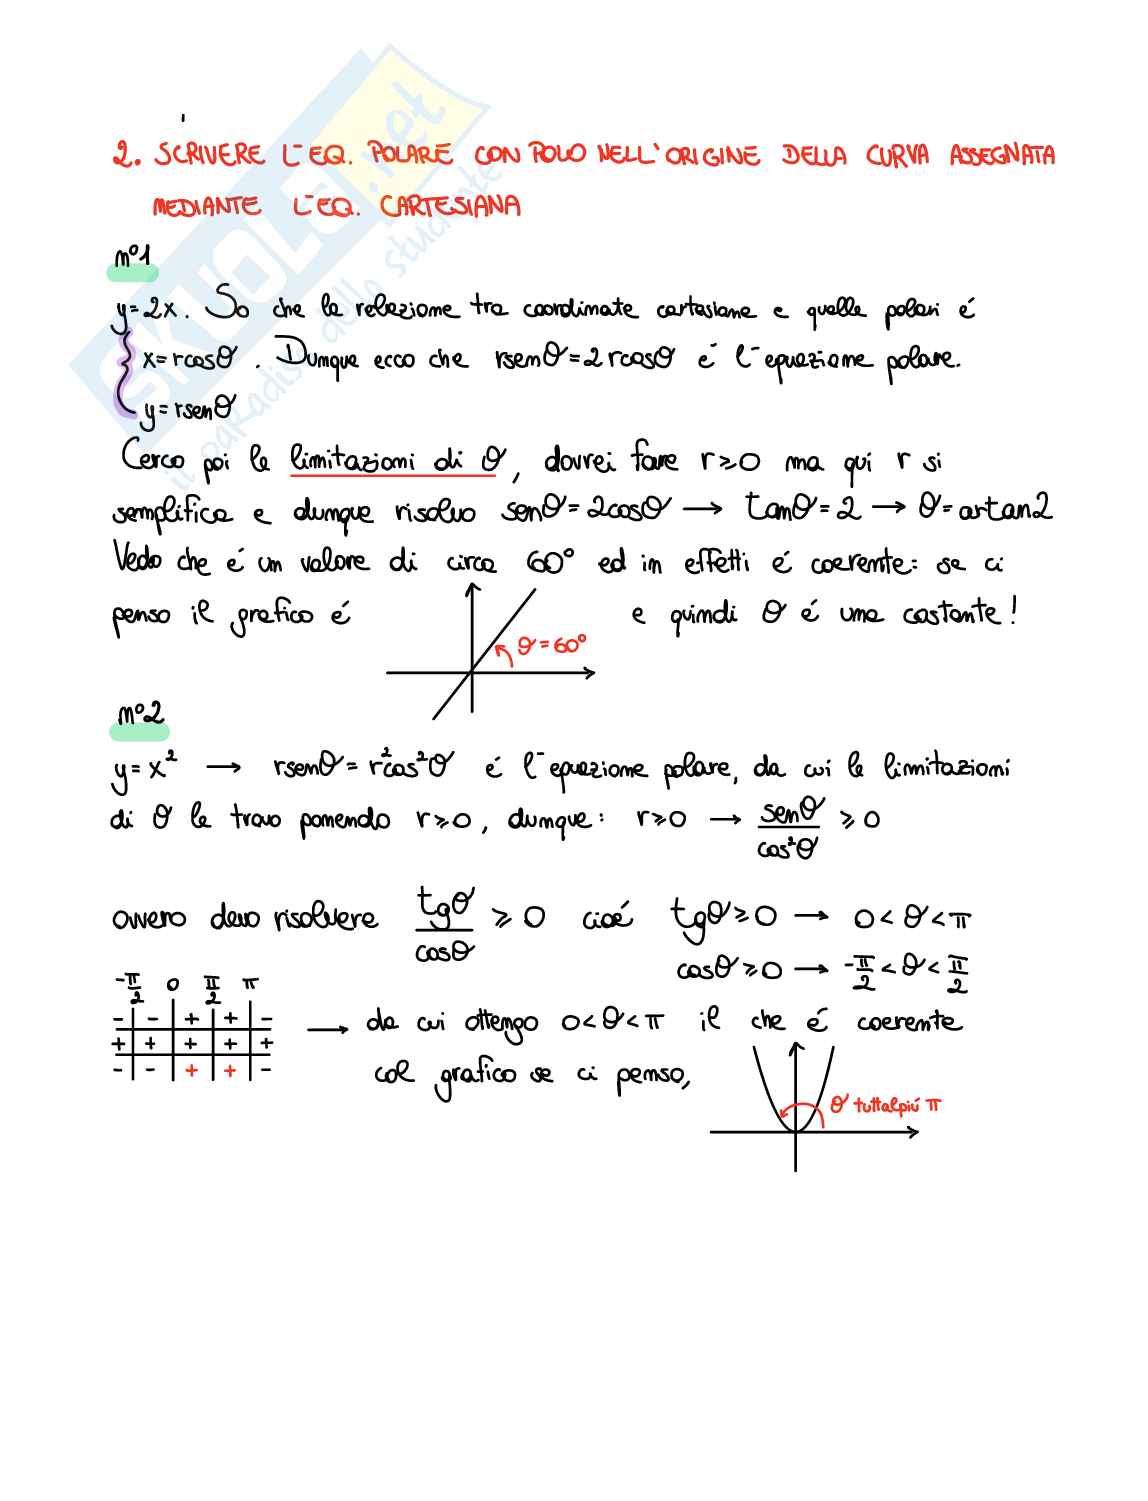 2. SCRIVERE L'EQ. POLARE CON POLO NELL'ORIGINE DELLA CURVA ASSEGNATA
MEDIANTE L'EQ. CARTESIANA
n°1
y=2x. So che la relazione tra coordinate cartesiane e quelle polari é
x=rcosθ . Dunque ecco che rsenθ=2rcosθ é l'equazione polare.
y=rsenθ
Cerco poi le limitazioni di θ, dovrei fare r⩾0 ma quí r si
semplifica e dunque risolvo senθ=2cosθ → tanθ=2 → θ=artan2
Vedo che é un valore di circa 60° ed in effetti é coerente: se ci
penso il grafico é e quindi θ é una costante!
θ=60°
n°2
y=x² → rsenθ=r²cos²θ é l'equazione polare, da cuí le limitazioni
di θ le trovo ponendo r⩾0, dunque: r⩾0 → senθ/cos²θ ⩾0
ovvero devo risolvere tgθ/cosθ ⩾0 cioé tgθ⩾0 → 0<θ<π
cosθ⩾0 → -π/2<θ<π/2
-π/2 0 π/2 π
- - + + -
+ + + + +
- - + + -
→ da cui ottengo 0<θ<π il che é coerente
col grafico se ci penso,
θ tuttalpiú π
SKUOLA.net
il paradiso dello studente